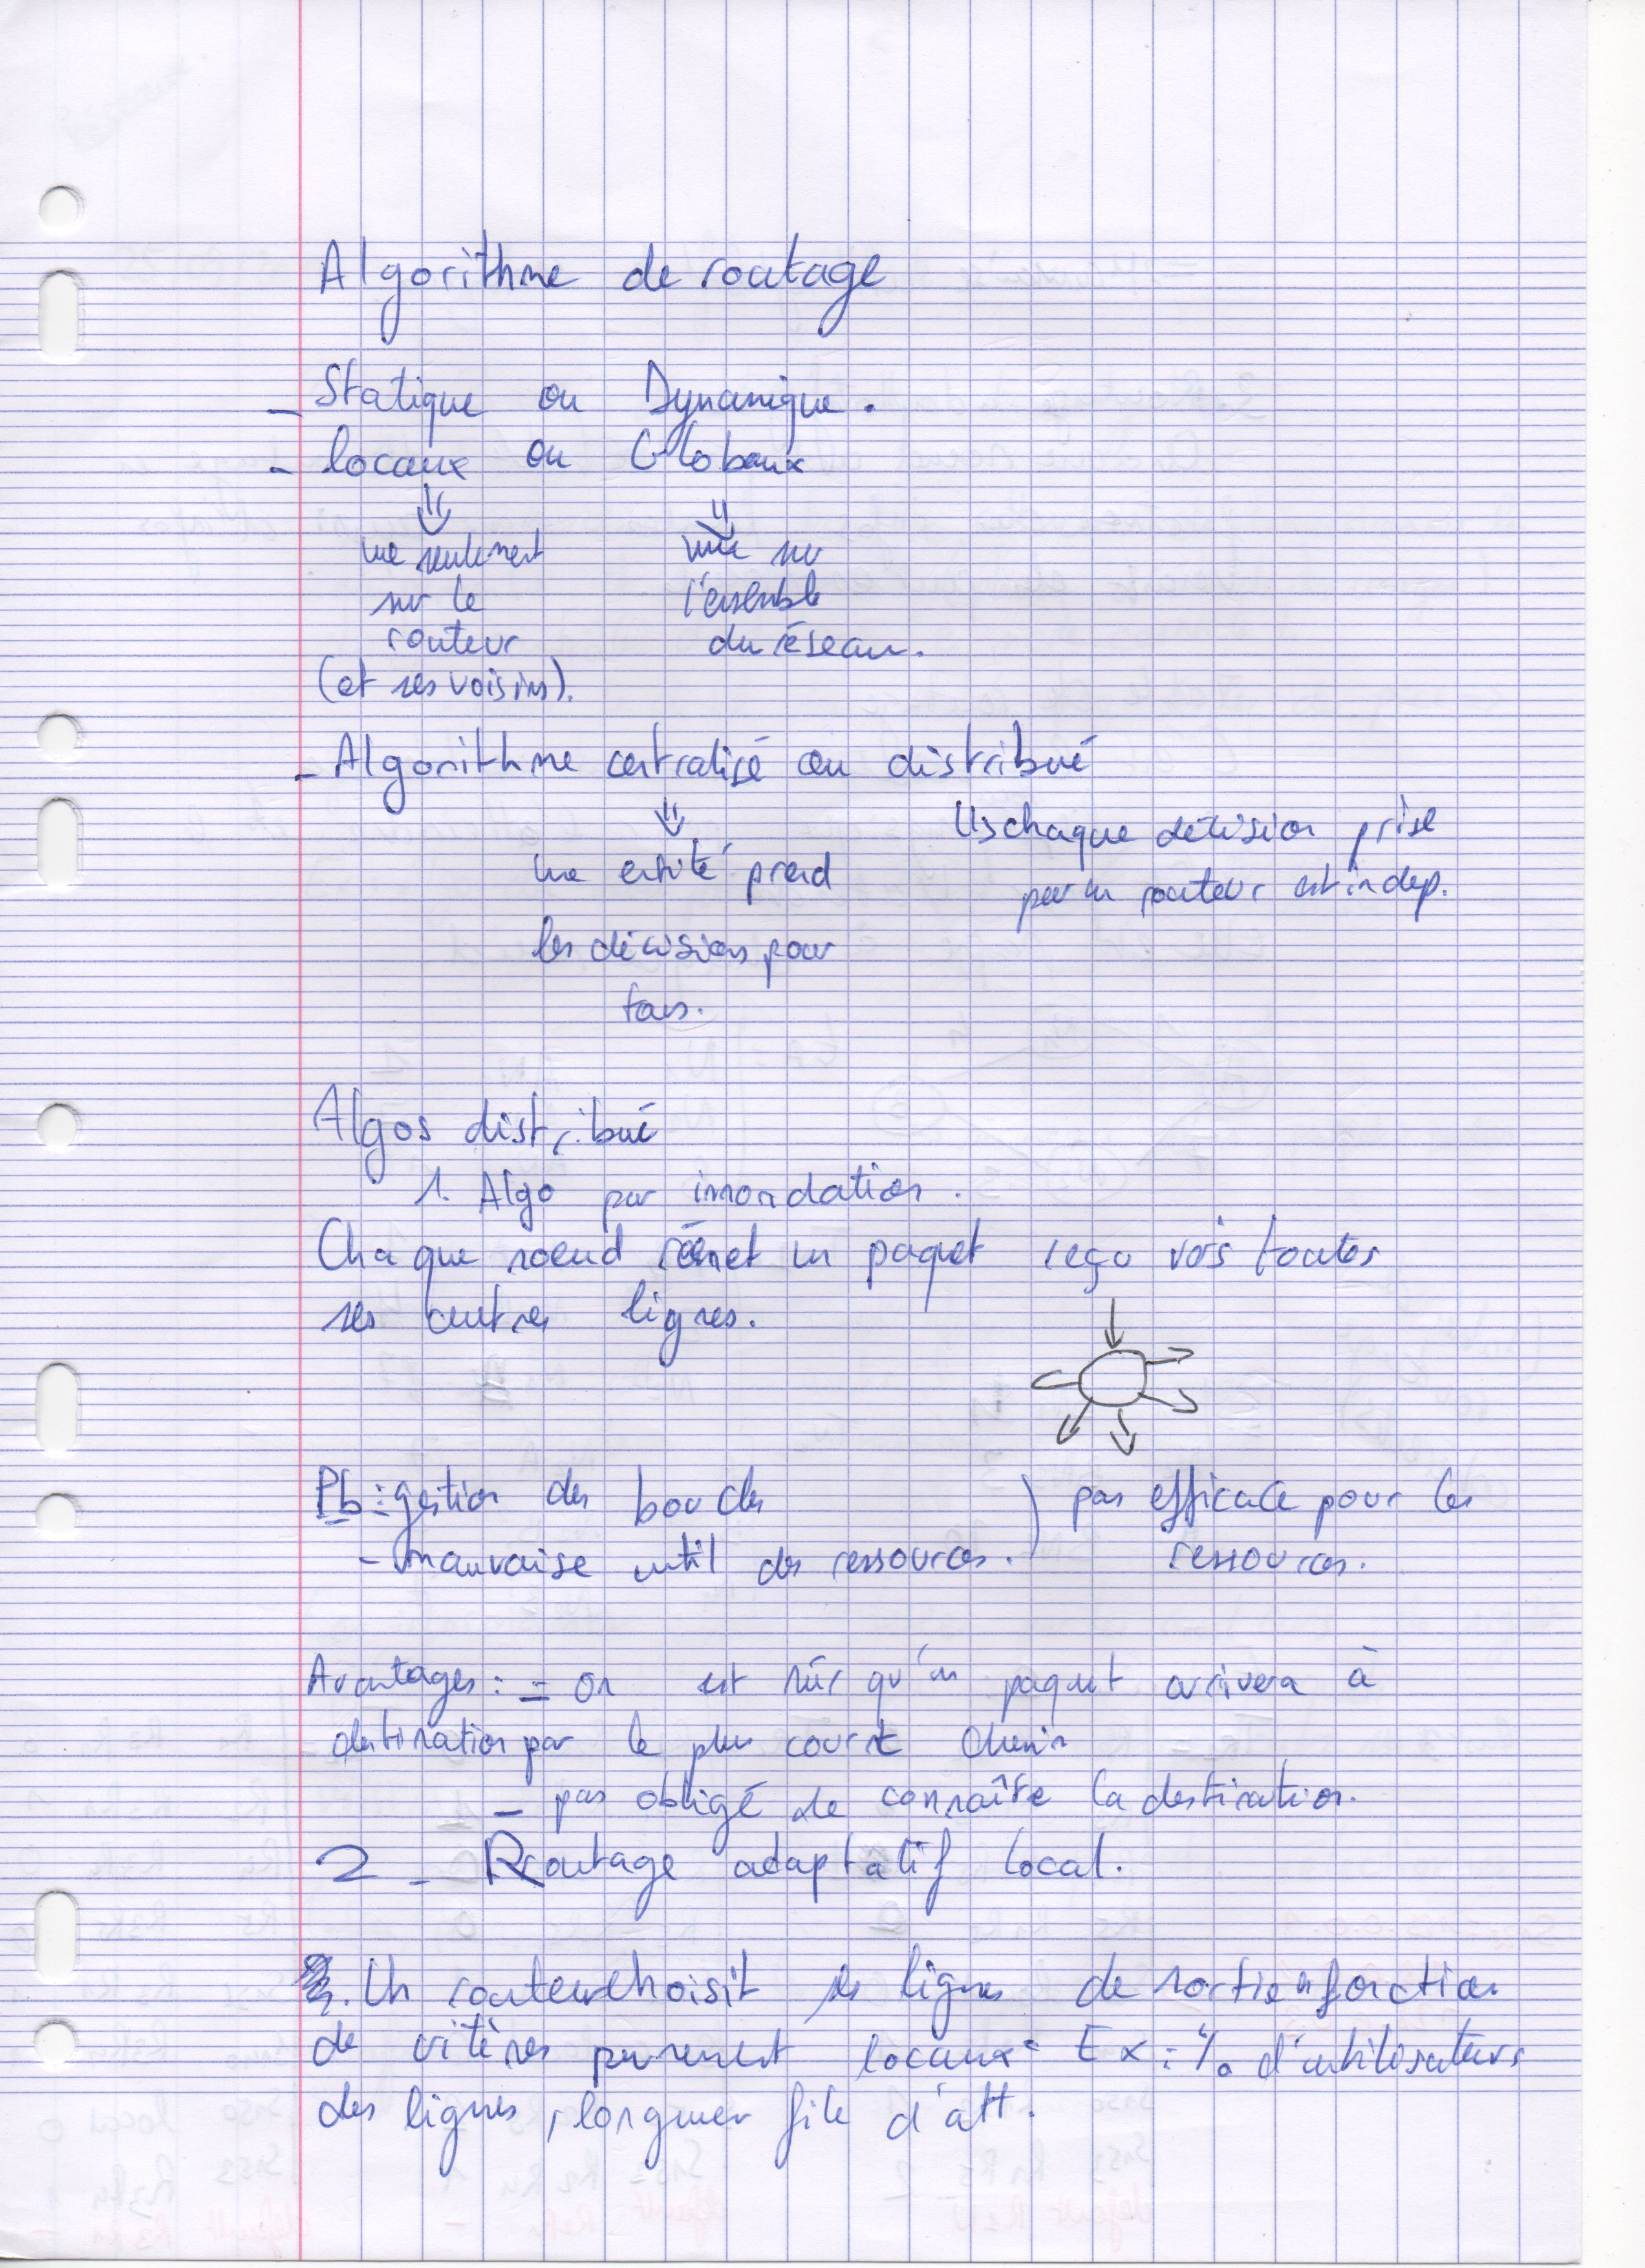 Algorithme de routage
- Statique ou Dynamique.
- locaux ou Globaux
vue seulement
sur le
routeur
(et ses voisins).
vue sur
l'ensemble
du réseau.
- Algorithme centralisé ou distribué
une entité prend
les décisions pour
tous.
chaque décision prise
par un routeur est indep.
Algos distribué
1. Algo par innondation.
Chaque noeud réémet un paquet reçu vers toutes
ses autres lignes.
Pb : gestion des boucles
- mauvaise util des ressources.
pas efficace pour les
ressources.
Avantages : - on est sûr qu'un paquet arrivera à
destination par le plus court chemin
- pas obligé de connaître la destination.
2 - Routage adaptatif local.
Un routeur choisit ses lignes de sortie en fonction
de critères purement locaux. Ex : % d'utilisateurs
des lignes, longueur file d'att.